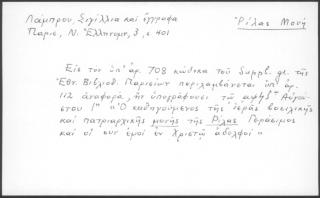 Λάμπρου, Σιγίλλια και έγγραφα
Παρισ., Ν. Ἑλληνομν, 3, σ 401
Ῥίλας Μονή
Εἰς τον ὑπ' ἀρ. 708 κώδικα τοῦ Suppl. gr. τῆς
Ἐθν. Βιβλιοθ. Παρισίων περιλαμβάνεται ὑπ' ἀρ.
112 ἀναφορὰ, ἣν ὑπογράφουσι τῷ Αὐγού-
στου "Ὁ καθηγούμενος τῆς ἱερᾶς βασιλικῆς
καὶ πατριαρχικῆς μονῆς τῆς Ρίλας Γεράσιμος
καὶ οἱ συν ἐμοὶ ἐν Χριστῷ ἀδελφοί"